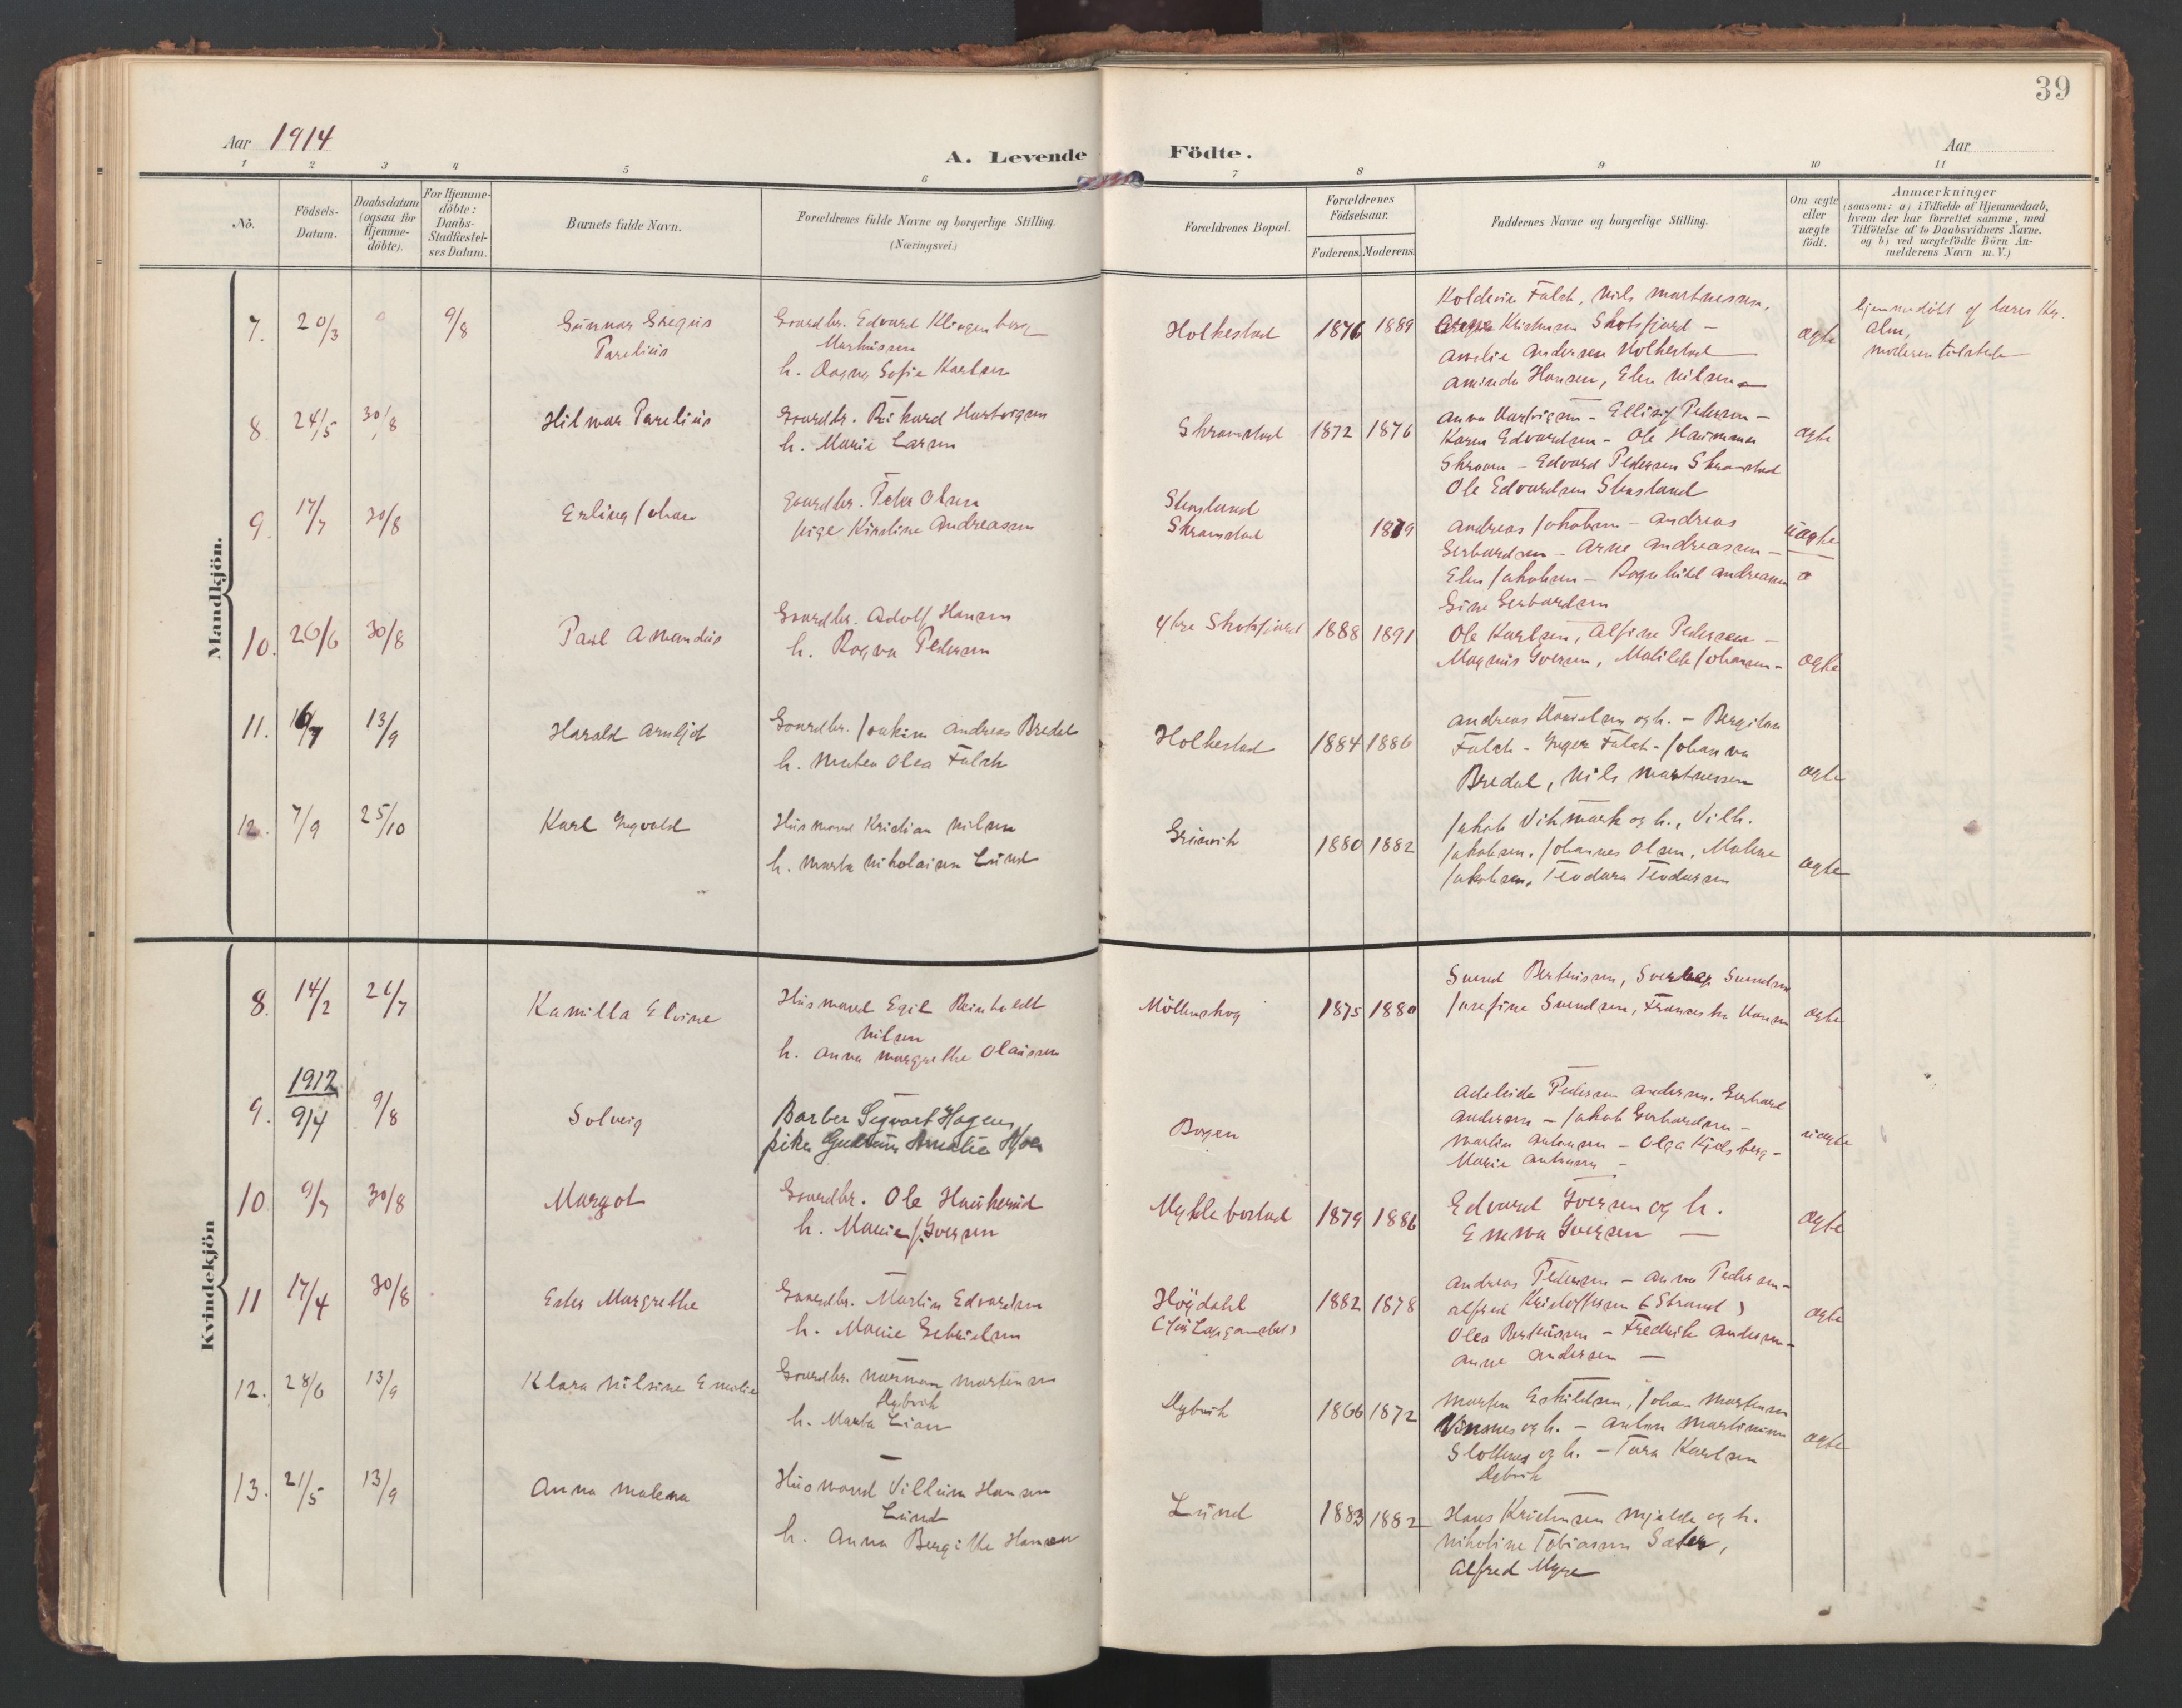 39
Aar 1914
A. Levende Födte.
Aar
1 2 3 4 5 6 7 8 9 10 11
No.
Födsels-
Datum.
Daabsdatum
(ogsaa for
Hjemme-
döbte).
For Hjemme-
döbte:
Daabs-
Stadfæstel-
ses Datum.
Barnets fulde Navn.
Forældrenes fulde Navne og borgerlige Stilling.
(Næringsvei.)
Forældrenes Bopæl.
Forældrenes
Födselsaar.
Faderens. Moderens.
Faddernes Navne og borgerlige Stilling.
Om ægte
eller
uægte
födt.
Anmærkninger
(saasom: a) i Tilfælde af Hjemmedaab,
hvem der har forrettet samme, med
Tilföielse af to Daabsvidners Navne.
og b) ved uægtefödte Börn An-
melderens Navn m. V.)
Mandkjön.
7. 20/3 9/8
Gunnar Gregus
Parelius
Gaardbr. Edvard Klingenberg
Markussen
h. Dagny Sofie Karlsen
Holkestad 1876 1889
Koldevin Falch, Nils Martnessen,
Kristensen Skotsfjord –
Amalie Andersen Holkestad
Aminda Hansen, Elen Nilsen
ægte
hjemmedöbt af lærer Kr.
Alm,
moderen tilstede
8 24/5 30/8
Hilmar Parelius
Gaardbr. Rikard Hartvigsen
h. Marie Larsen
Skramstad 1872 1876
Anna Hartvigsen – Ellisif Pedersen –
Karen Edvardsen – Ole Hammer
Skraam – Edvard Pedersen Skramstad
Ole Edvardsen Stensland
ægte
9. 17/7 30/8
Erling Johan
Gaardbr. Peter Olsen
pige Kirstine Andreasen
Stensland
Skramstad
1879
Andreas Jakobsen – Andreas
Gerhardsen – Arne Andreasen –
Elen Jakobsen – Ragnhild Andreasen
Gine Gerhardsen
uægte
10. 26/6 30/8
Paul Amandus
Gaardbr. Adolf Hansen
h. Ragna Pedersen
Ytre Skotsfjord 1888 1891
Ole Karlsen, Alfine Pedersen –
Magnus Iversen, Matilde Johansen –
ægte
11. 16/7 13/9
Harald Arnljot
Gaardbr. Joakim Andreas Bredal
h. Matea Olea Falch
Holkestad 1884 1886
Andreas Danielsen og h. – Bergitha
Falch – Inger Falch – Johanna
Bredal, Nils Martnessen
ægte
12. 7/9 25/10
Karl Ingvald
Husmand Kristian Nilsen
h. Marta Nikolaisen Lund
Grönvik 1880 1882
Jakob Vikmark og h., Vilh.
Jakobsen, Johannes Olsen, Malene
Jakobsen, Teodora Teodorsen
ægte
Kvindekjön
8. 14/2 26/7
Kamilla Elvine
Husmand Egil Reinholdt
Nilsen
h. Anna Margrethe Olaussen
Möllenskog 1875 1880
Svend Berteussen, Svendsen
Josefine Svendsen, Franseska Hansen
ægte
9. 1912
9/4 9/8
Solveig
Barber Sigvart Hagen,
pike Gudrun Amalia
Bogen
Adeleide Pedersen Andersen, Gerhard
Andersen – Jakob Gerhardsen –
Martin Antonsen – Olga Kjelsberg –
Marie Antonsen –
uægte
10 9/7 30/8
Margot
Gaardbr. Ole Haukerud
h. Marie J. Iversen
Myklebostad 1879 1886
Edvard Iversen og h.
Emma Iversen —
ægte
11 17/4 30/8
Ester Margrethe
Gaardbr. Martin Edvardsen
h. Marie Gebrielsen
Högdahl
1882 1878
Andreas Pedersen – Anna Pedersen –
Alfred Kristoffersen (Strand)
Olea Berteussen – Fredrik Andersen –
Anne Andersen —
ægte
12. 28/6 13/9
Klara Nilsine Emilie
Gaardbr. Norman Martensen
Dybvik
h. Marta Lian
Dybvik 1866 1872
Morten Eskildsen, Johan Mortensen
Vinsnes og h. – Anton Martinussen
Slottenes og h. – Tora Karlsen
Dybvik
ægte
13. 21/5 13/9
Anna Malena
Husmand Villum Hansen
Lund
h. Anna Bergitte Hansen
Lund 1883 1882
Hans Kristensen Mjelde og h.
Nikoline Tobiassen Sæter,
Alfred Myre